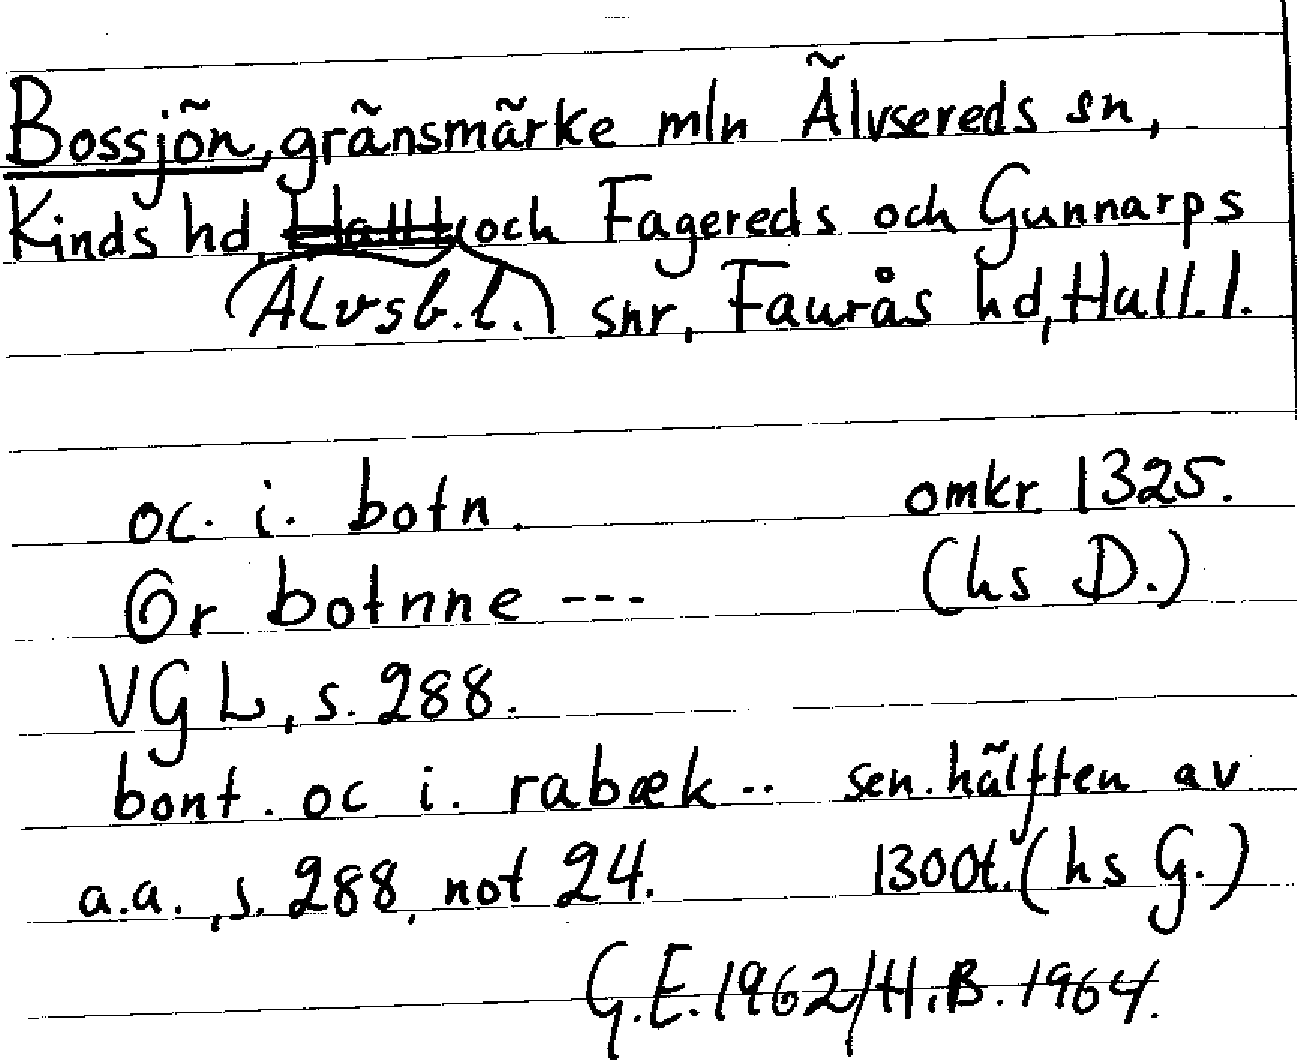 Bossjön, gränsmärke mln Älvsereds sn,
Kinds hd och Fagereds och Gunnarps
(Älvsb.l.) snr, Faurås hd, Hall.l.
oc. i. botn. omkr 1325.
Or botnne --- (hs D.)
VGL, s. 288.
bont. oc i. rabæk.. sen. hälften av
a.a., s. 288, not 24. 1300t. (hs G.)
G.E. 1962/H.B. 1964.